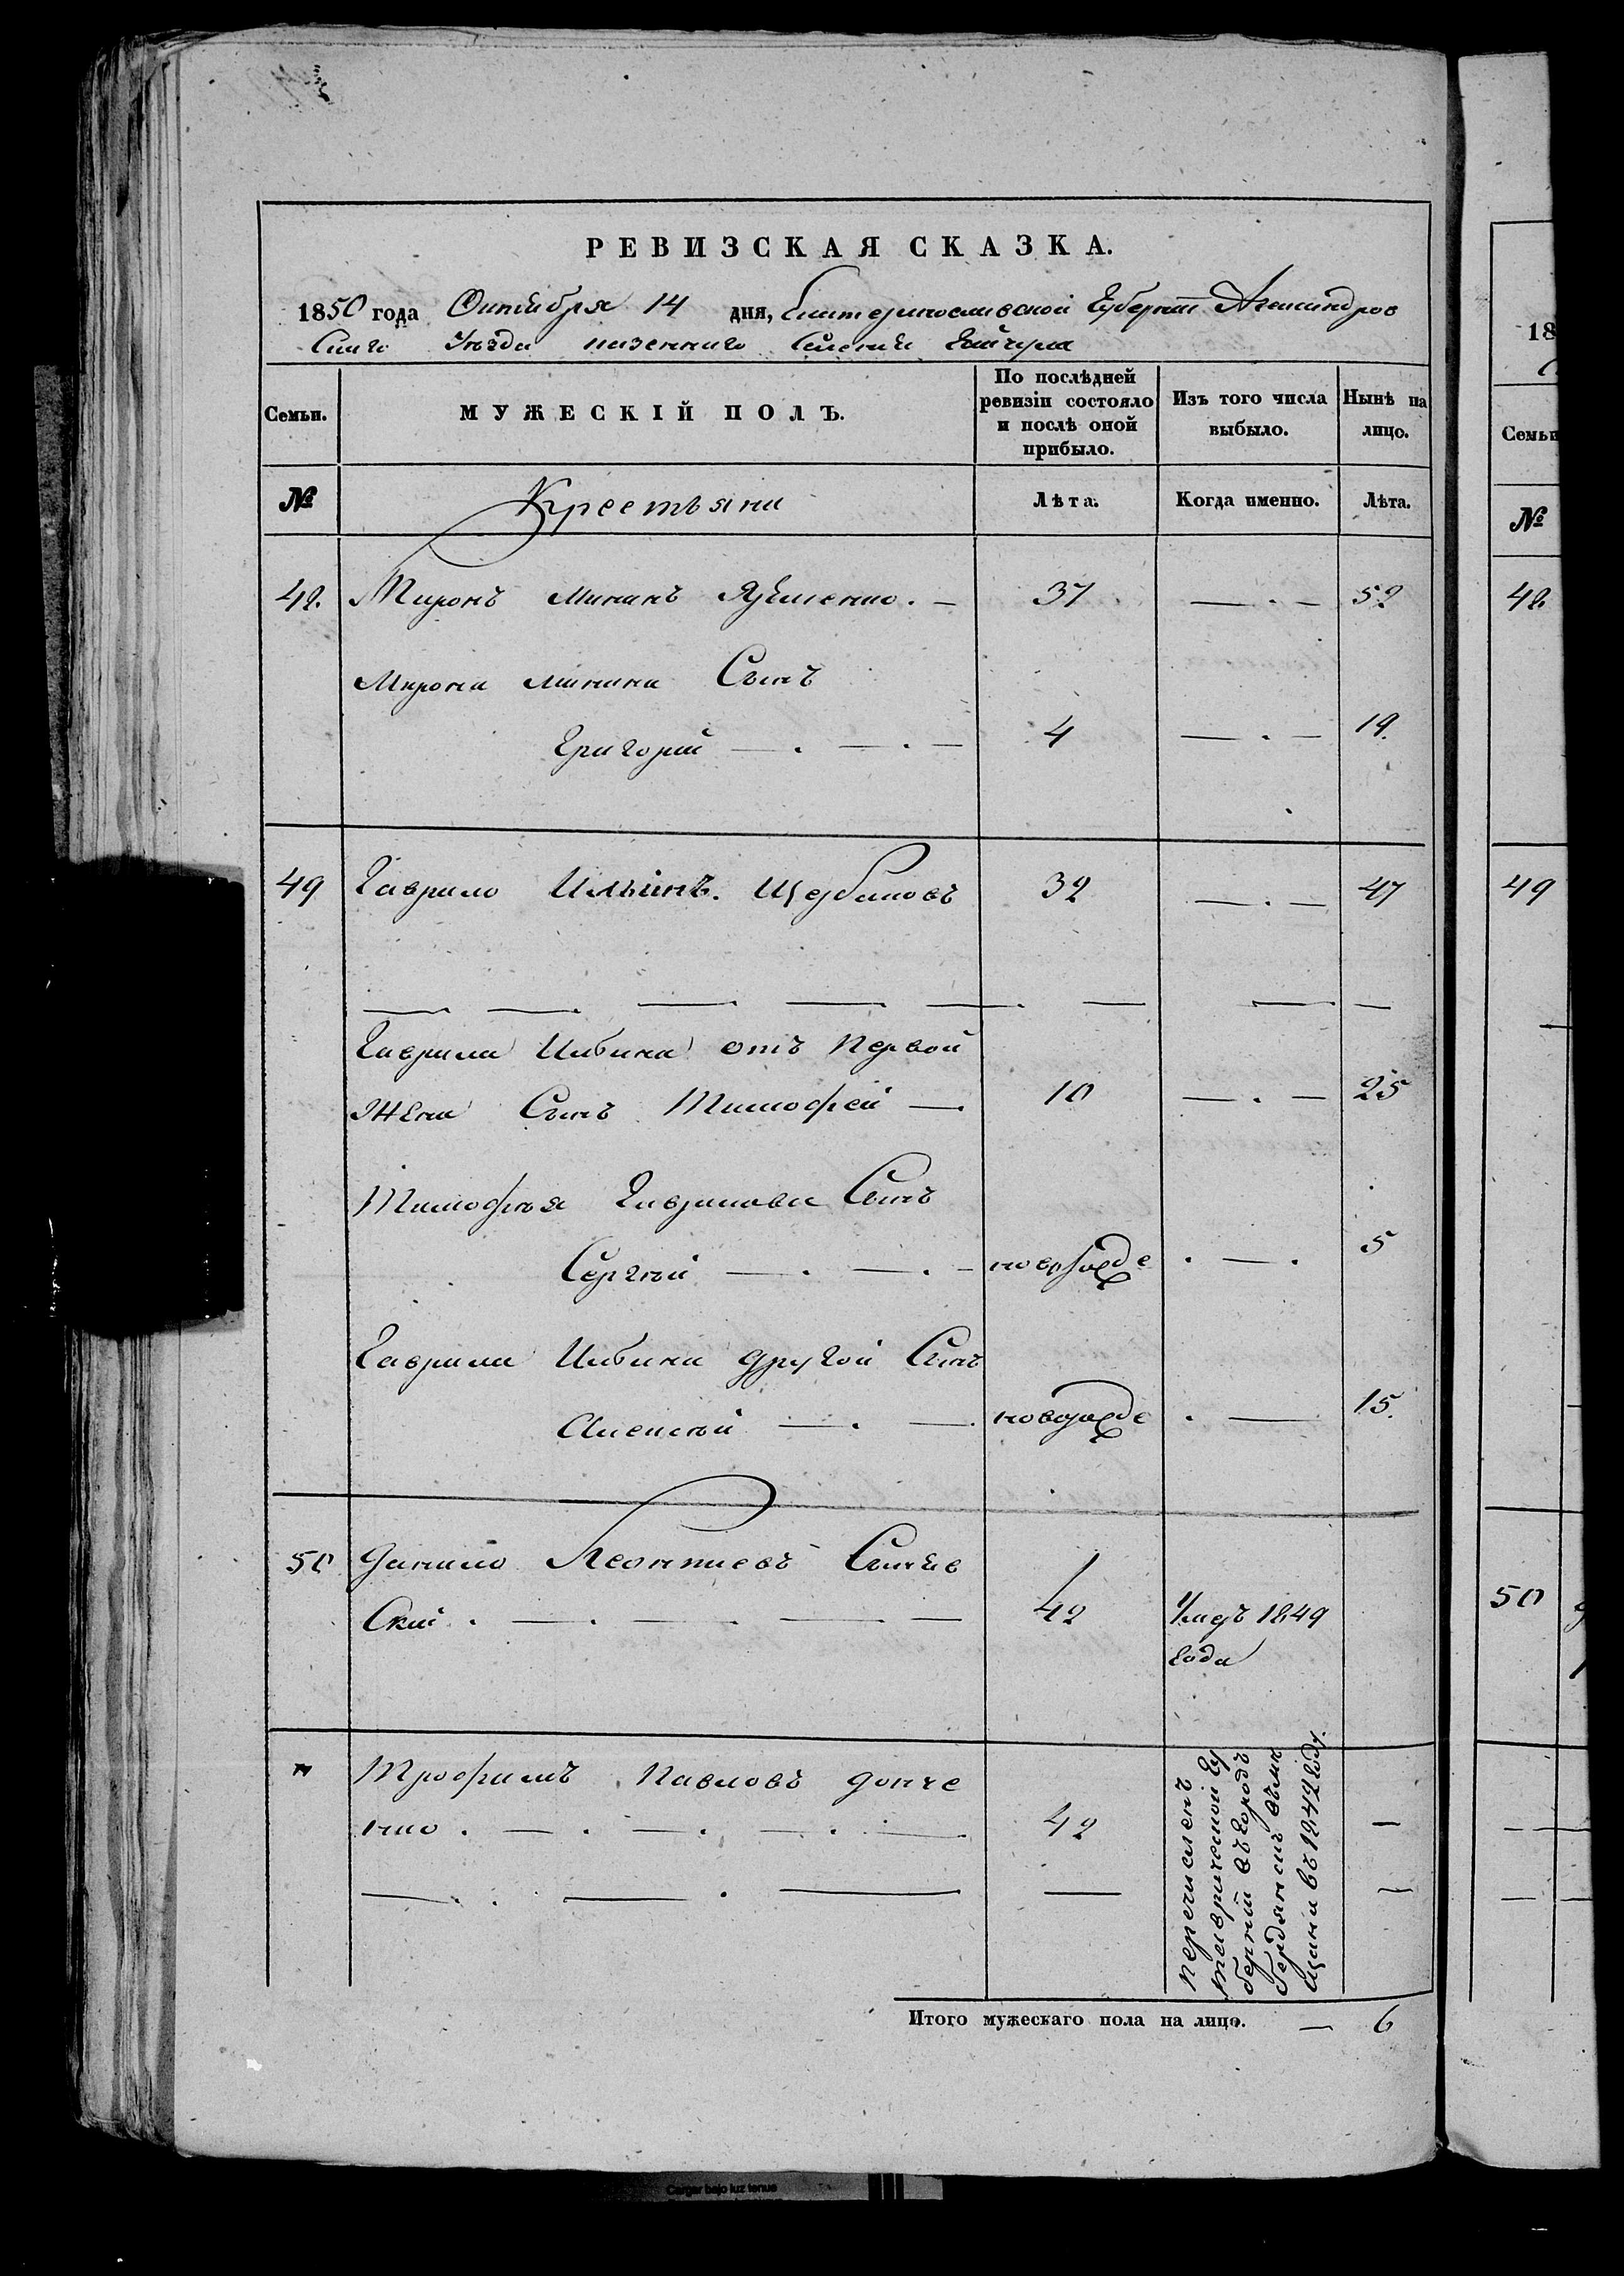 РЕВИЗСКАЯ СКАЗКА.
1850 года Октября 14 дня, Екатеринославской Губерніи Александров
Скаго Уѣзда казеннаго Селенія
Семьи.
МУЖЕСКІЙ ПОЛЪ.
По послѣдней ревизіи состояло и послѣ оной прибыло.
Изъ того числа выбыло.
Нынѣ на лицо.
№
Крестьяни
Лѣта.
Когда именно.
Лѣта.
48. Миронъ Мининъ 37 — . — 52
Мирона Минина Сынъ
Григорий — . — . — 4 — . — 19.
49 Гаврило Ильинъ. Щербаковъ 32 — . — 47
Гаврила Ильина отъ первой
Жены Сынъ Тимофей — . 10 — . — 25
Тимофѣя Гаврилова Сынъ
Сергѣй — . — . — новорожде . — . 5
Гаврила Ильина другой Сынъ
Алексѣй — . — . новорожде . — 15.
50 Данило Леонтиевъ
Ский . — . — . — — 42 Умеръ 1849
Года
" Трофимъ Павловъ Донче
нко . — . — . — . — 42 —
перечисленъ
таврической Гу
берніи въ городъ
Бердянскъ въ мѣ
щани въ 1842 году.
Итого мужескаго пола на лицо. — 6
18
Семьи
№
48.
49
50
Cargar bajo luz tenue